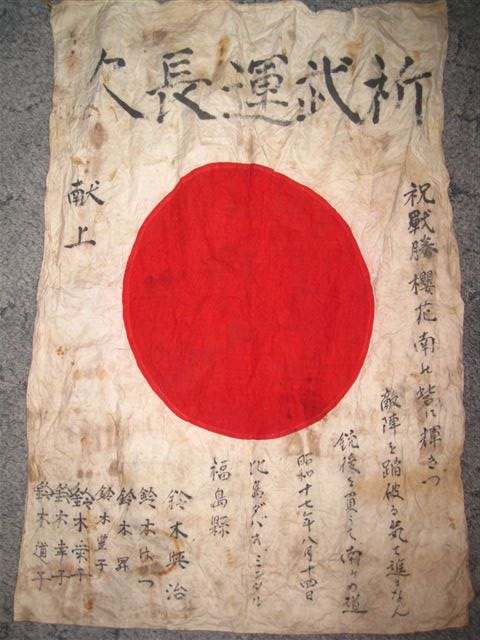 祈武運長久
祝戰勝 櫻花南比 輝きつ
敵陣を踏破る気で進まなん
銃後を 南 の道
昭和十七年八月十四日
比島ダバオ、ミンタル
福島縣
鈴木興治
鈴木はつ
鈴木昇
鈴木豊子
鈴木栄子
鈴木幸子
鈴木道子
献上